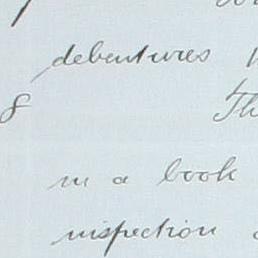 debentures
8 Th
in a book
inspection